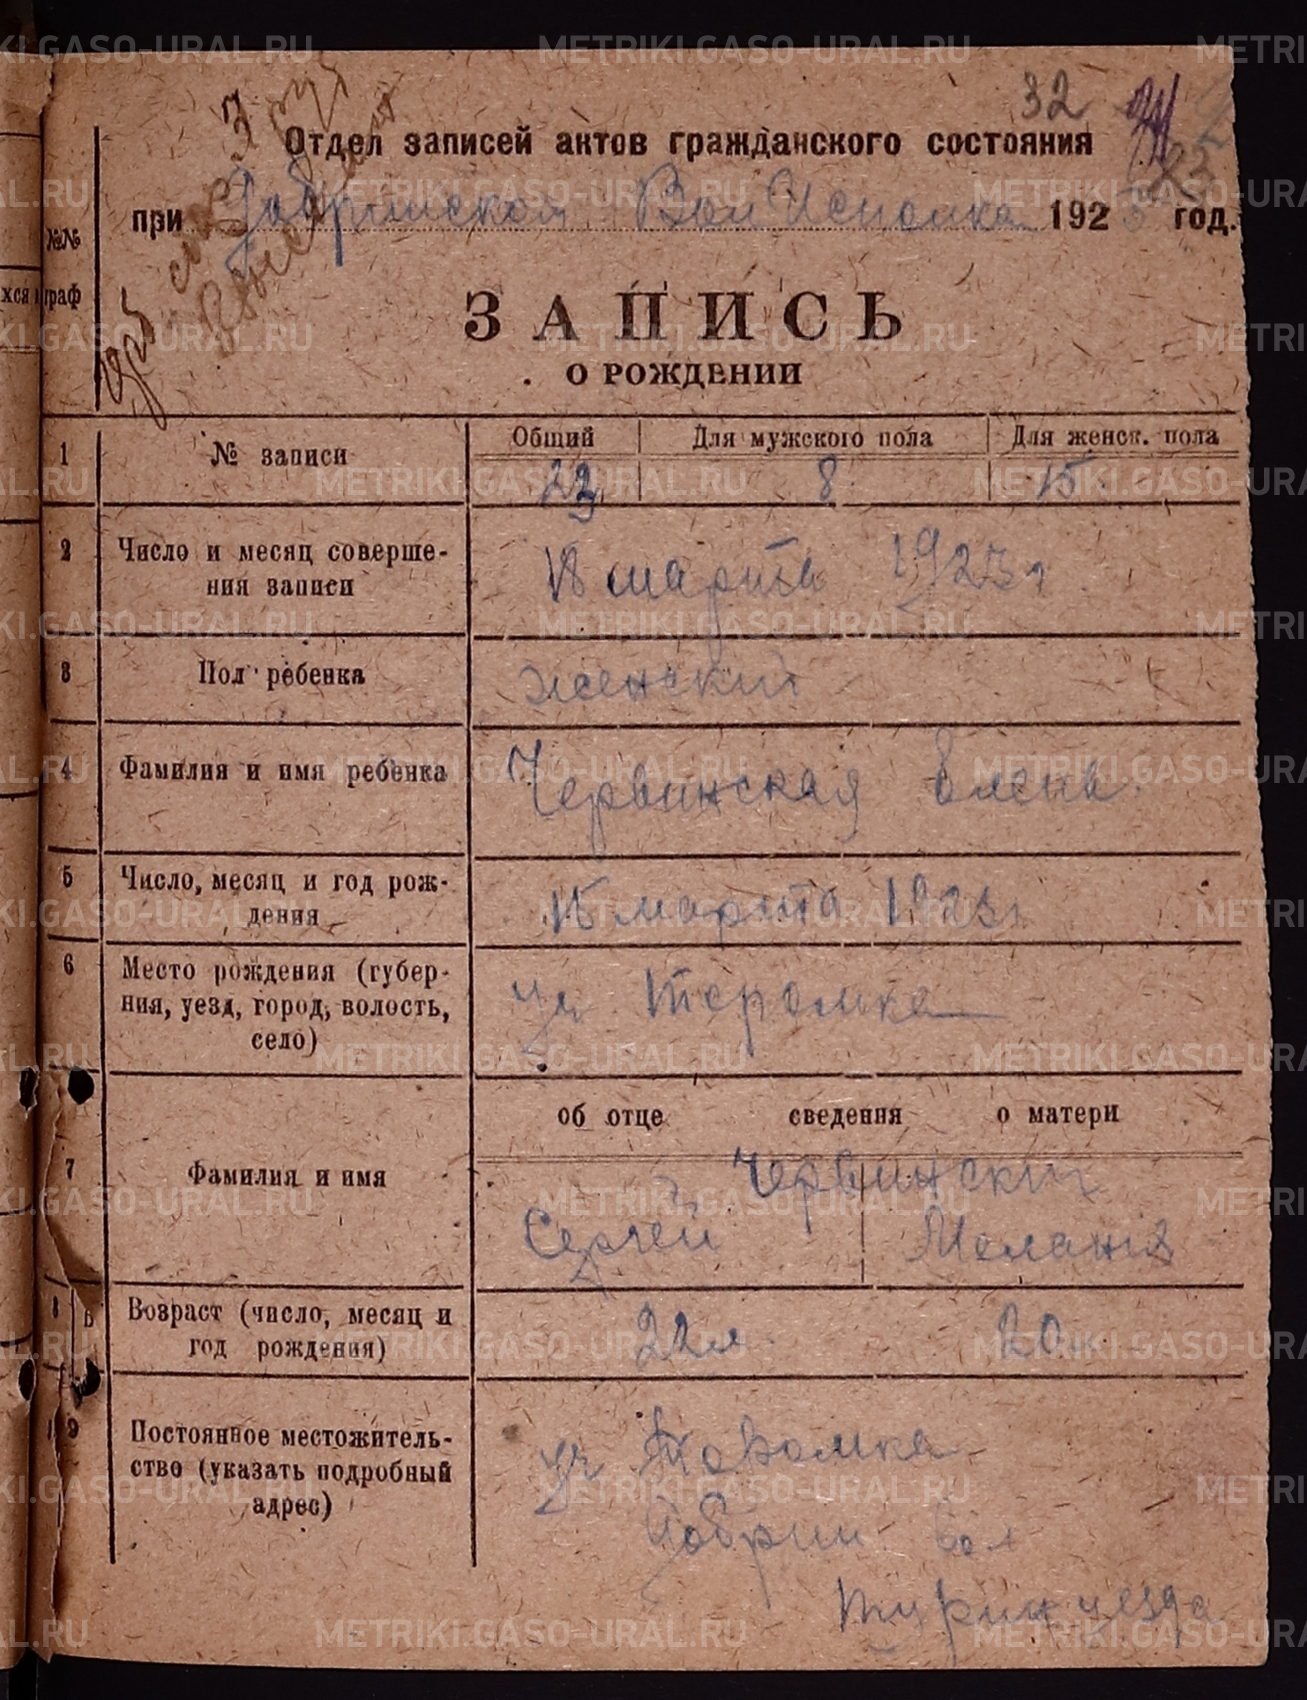 32
Отдел записей актов гражданского состояния
при Добринском Вол Исполка 1923 год.
№№
граф
ЗАПИСЬ
О РОЖДЕНИИ
1 № записи Общий Для мужского пола Для женск. пола
23 8 15
2 Число и месяц соверше-
ния записи
18 марта 1923 г
3 Пол ребенка женский
4 Фамилия и имя ребенка Червинская Елена
5 Число, месяц и год рож-
дения
марта 1923 г
6 Место рождения (губер-
ния, уезд, город, волость,
село)
уч
об отце сведения о матери
7 Фамилия и имя
Червинский
Сергей Мелания
8 Возраст (число, месяц и
год рождения)
22 л 20 л
9 Постоянное местожитель-
ство (указать подробный
адрес)
уч
Добрин вол
Турин уезда
METRIKI.GASO-URAL.RU